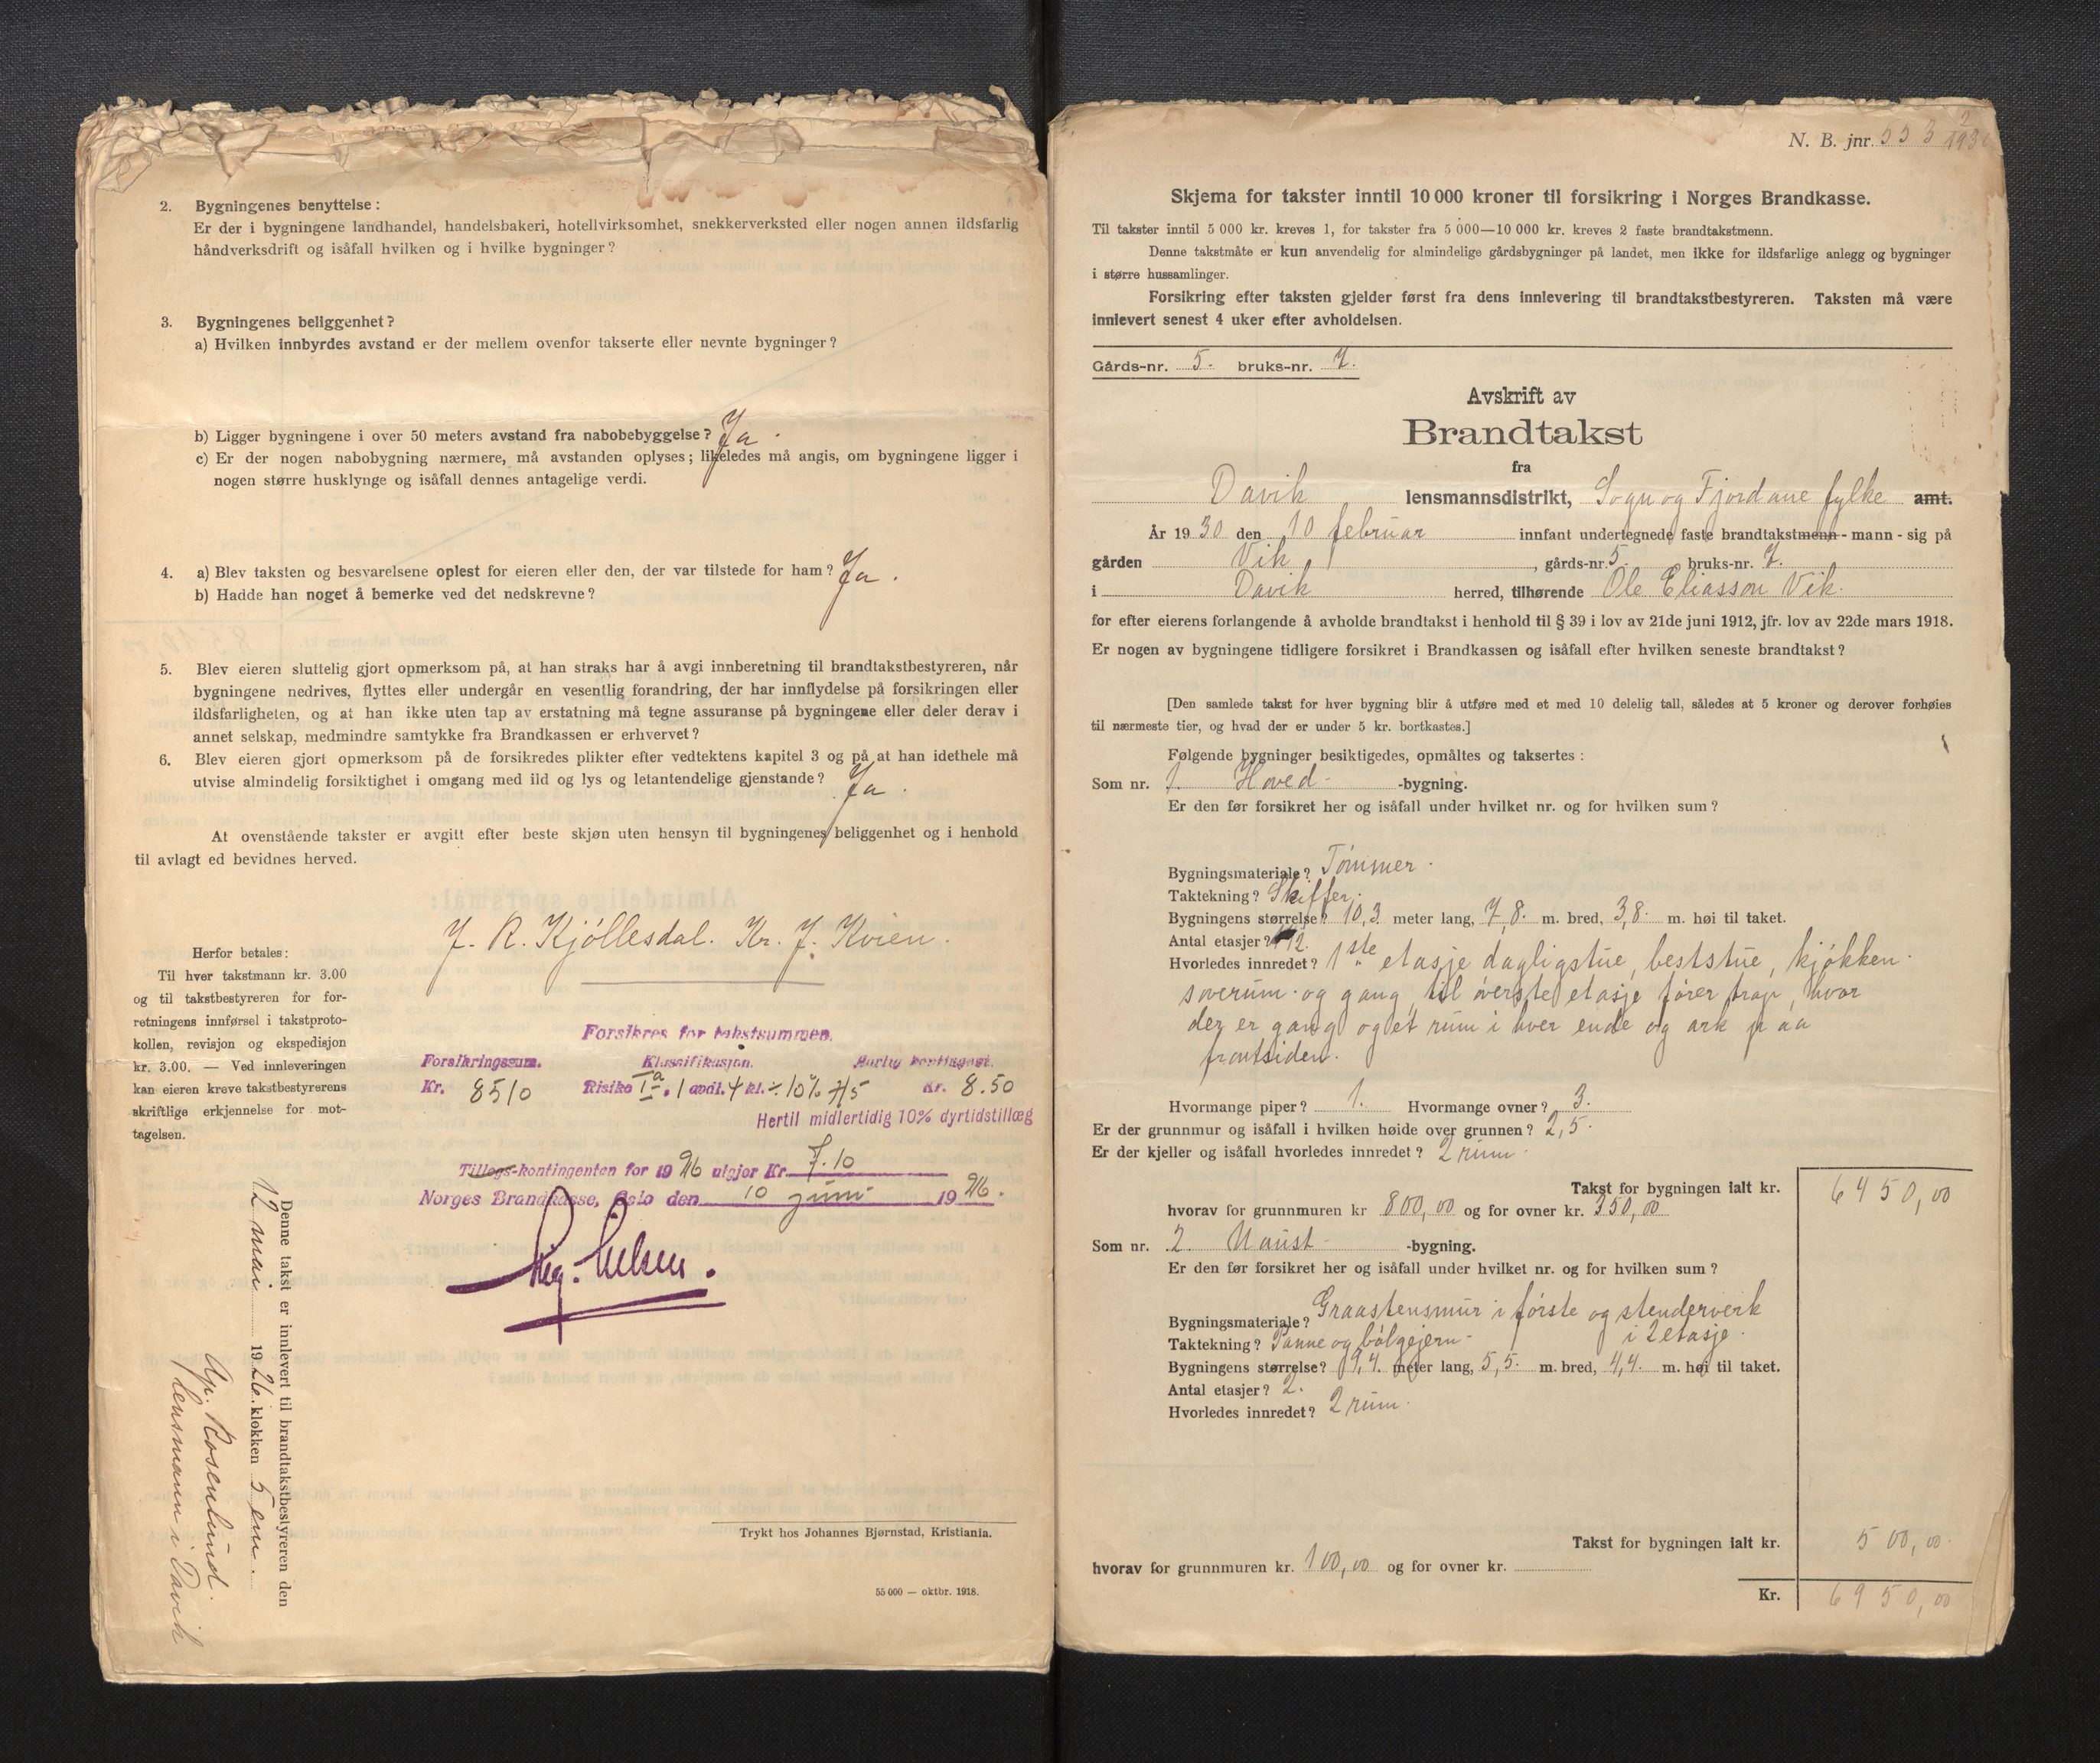 2. Bygningenes benyttelse:
Er der i bygningene landhandel, handelsbakeri, hotellvirksomhet, snekkerverksted eller nogen annen ildsfarlig
håndverksdrift og isåfall hvilken og i hvilke bygninger?
3. Bygningenes beliggenhet?
a) Hvilken innbyrdes avstand er der mellem ovenfor takserte eller nevnte bygninger?
b) Ligger bygningene i over 50 meters avstand fra nabobebyggelse? Ja.
c) Er der nogen nabobygning nærmere, må avstanden oplyses; likeledes må angis, om bygningene ligger i
nogen større husklynge og isåfall dennes antagelige verdi.
4. a) Blev taksten og besvarelsene oplest for eieren eller den, der var tilstede for ham? Ja.
b) Hadde han noget å bemerke ved det nedskrevne?
5. Blev eieren sluttelig gjort opmerksom på, at han straks har å avgi innberetning til brandtakstbestyreren, når
bygningene nedrives, flyttes eller undergår en vesentlig forandring, der har innflydelse på forsikringen eller
ildsfarligheten, og at han ikke uten tap av erstatning må tegne assuranse på bygningene eller deler derav i
annet selskap, medmindre samtykke fra Brandkassen er erhvervet?
6. Blev eieren gjort opmerksom på de forsikredes plikter efter vedtektens kapitel 3 og på at han idethele må
utvise almindelig forsiktighet i omgang med ild og lys og letantendelige gjenstande? Ja.
At ovenstående takster er avgitt efter beste skjøn uten hensyn til bygningenes beliggenhet og i henhold
til avlagt ed bevidnes herved.
J. R. Kjøllesdal. Kr. J. Kvien.
Herfor betales:
Til hver takstmann kr. 3.00
og til takstbestyreren for for-
retningens innførsel i takstproto-
kollen, revisjon og ekspedisjon
kr. 3.00. — Ved innleveringen
kan eieren kreve takstbestyrerens
skriftlige erkjennelse for mot-
tagelsen.
Forsikres for takstsummen.
Forsikringssum. Klassifikasjon. Aarlig kontingent.
Kr. 8510 Risiko Ia. 1 avdl. 4 kl. ÷ 10% Kr. 8.50
Hertil midlertidig 10% dyrtidstillæg
Tillegs-kontingenten for 1926 utgjør Kr. 7.10
Norges Brandkasse, Oslo den 10 juni 1926.
Denne takst er innlevert til brandtakstbestyreren den
12 mai 1926. klokken 5 em.
Ap. Rosenlund
lensmann i Davik
Trykt hos Johannes Bjørnstad, Kristiania.
55 000 — oktbr. 1918.
N. B. jnr. 553 2/1930
Skjema for takster inntil 10 000 kroner til forsikring i Norges Brandkasse.
Til takster inntil 5 000 kr. kreves 1, for takster fra 5 000—10 000 kr. kreves 2 faste brandtakstmenn.
Denne takstmåte er kun anvendelig for almindelige gårdsbygninger på landet, men ikke for ildsfarlige anlegg og bygninger
i større hussamlinger.
Forsikring efter taksten gjelder først fra dens innlevering til brandtakstbestyreren. Taksten må være
innlevert senest 4 uker efter avholdelsen.
Gårds-nr. 5. bruks-nr. 7.
Avskrift av
Brandtakst
fra
Davik lensmannsdistrikt, Sogn og Fjordane fylke amt.
År 1930 den 10 februar innfant undertegnede faste brandtakstmenn - mann - sig på
gården Vik, gårds-nr. 5. bruks-nr. 7.
i Davik herred, tilhørende Ole Eliasson Vik.
for efter eierens forlangende å avholde brandtakst i henhold til § 39 i lov av 21de juni 1912, jfr. lov av 22de mars 1918.
Er nogen av bygningene tidligere forsikret i Brandkassen og isåfall efter hvilken seneste brandtakst?
[Den samlede takst for hver bygning blir å utføre med et med 10 delelig tall, således at 5 kroner og derover forhøies
til nærmeste tier, og hvad der er under 5 kr. bortkastes.]
Følgende bygninger besiktigedes, opmåltes og taksertes:
Som nr. 1. Hoved- -bygning.
Er den før forsikret her og isåfall under hvilket nr. og for hvilken sum?
Bygningsmateriale? Tømmer.
Taktekning? Skiffer.
Bygningens størrelse? 10,3 meter lang, 7,8. m. bred, 3,8. m. høi til taket.
Antal etasjer? 2.
Hvorledes innredet? 1ste etasje dagligstue, beststue, kjøkken.
soverum. og gang, til øverste etasje fører trap, hvor
der er gang og et rum i hver ende og ark paa
frontsiden.
Hvormange piper? 1. Hvormange ovner? 3.
Er der grunnmur og isåfall i hvilken høide over grunnen? 2,5.
Er der kjeller og isåfall hvorledes innredet? 2 rum.
Takst for bygningen ialt kr. 6450,00
hvorav for grunnmuren kr 800,00 og for ovner kr. 350,00
Som nr. 2. Naust- -bygning.
Er den før forsikret her og isåfall under hvilket nr. og for hvilken sum?
Bygningsmateriale? Graastensmur i første og stenderverk
i 2 etasje.
Taktekning? Panne og bølgejern.
Bygningens størrelse? 9,4. meter lang, 5,5. m. bred, 4,4. m. høi til taket.
Antal etasjer? 2.
Hvorledes innredet? 2 rum.
Takst for bygningen ialt kr. 500,00
hvorav for grunnmuren kr. 100,00 og for ovner kr.
Kr. 6950,00